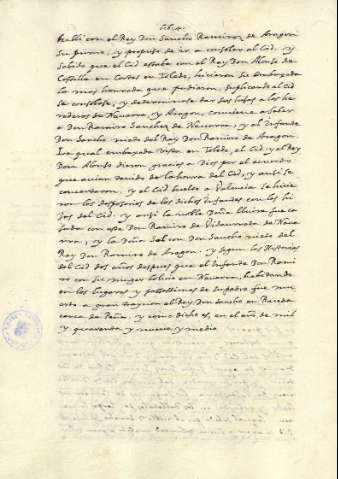 Habló con el Rey Don Sancho Ramirez de Aragon
Su primo, y propuso de ir a consolar al Cid, y
Sabido que el Cid estaba con el Rey Don Alonso de
Castilla en Cortes en Toledo, hicieron Su embajada
lo mas honrada que pudieron, Suplicando al Cid
se consolase, y determinase dar sus hijas a los he
rederos de Navarra, y Aragon, conviene a Saber
a Don Ramiro Sanchez de Navarra, y al Infante
Don Sancho nieto del Rey Don Ramiro de Aragon.
La qual embajada Vista en Toledo, el Cid y el Rey
Don Alonso dieron gracias a Dios por el acuerdo
que avian tenido de la honra del Cid, y ansi se
concertaron, y el Cid buelto a Valencia se hicie
ron los desposorios de los dichos Infantes con las hi
jas del Cid, y ansi la noble Doña Elvira fue ca
sada con este Don Ramiro de Nava
rra, y la Doña Sol con Don Sancho nieto del
Rey Don Ramiro de Aragon: y segun las Historias
del Cid dos años despues que el Infante Don Rami
ro con Su muger bolvio en Navarra, habitando
en los lugares y de Su padre fue mu
erto a gran traycion el Rey Don Sancho en Rueda
cerca de Peña, y como dicho es, en el año de mil
y quarenta y nueve, y medio